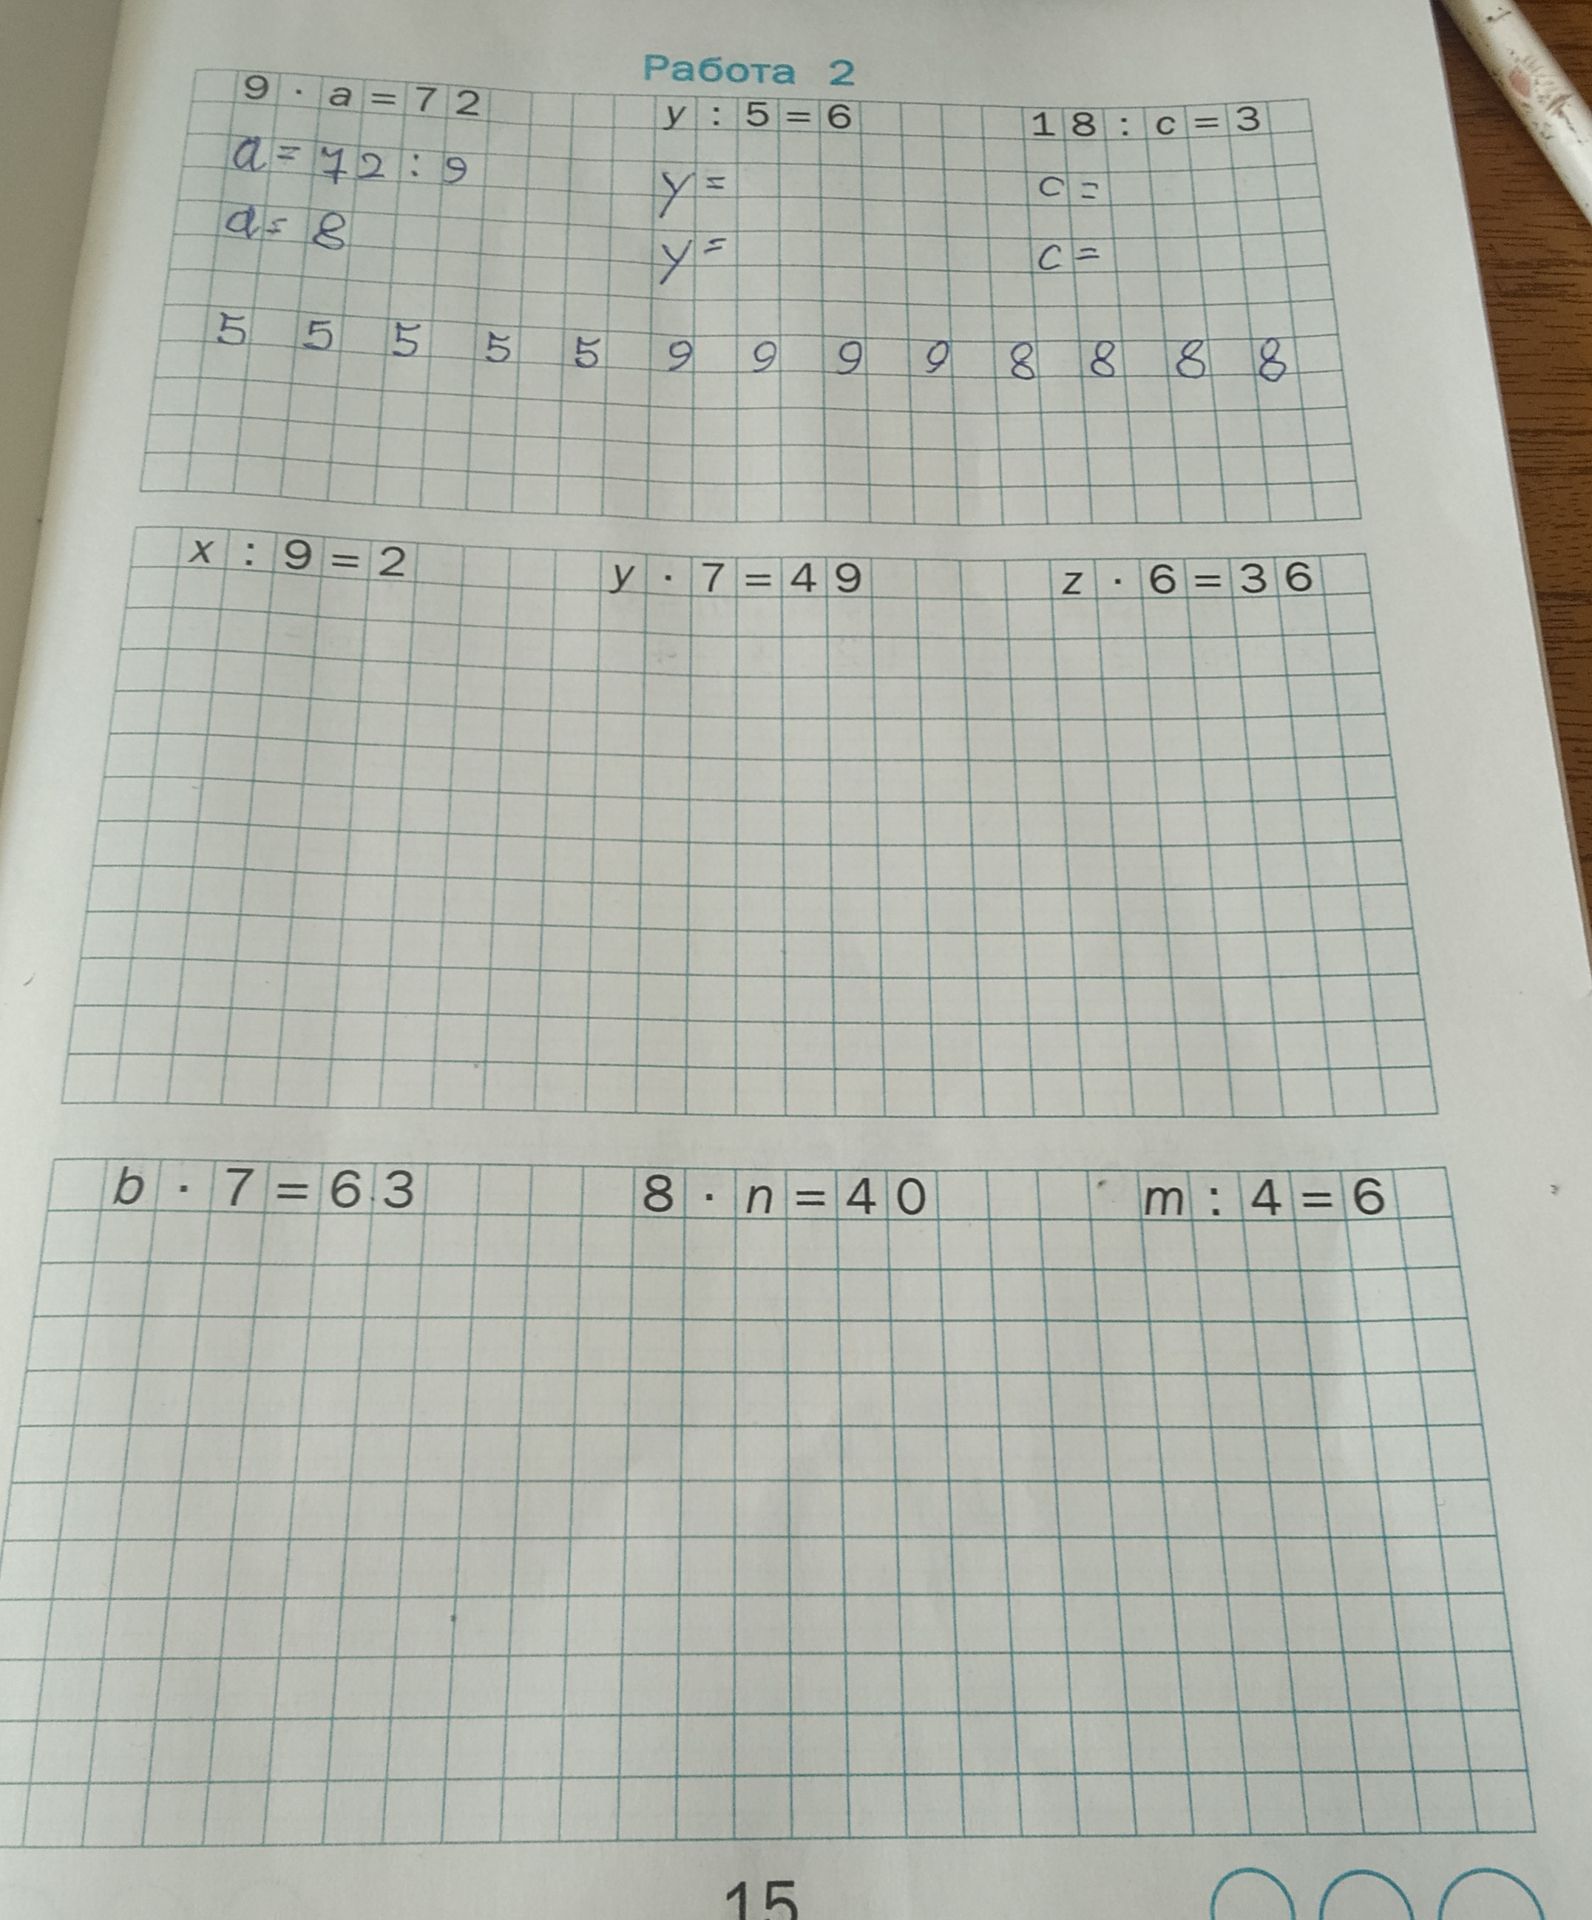 Работа 2
9 · a = 72 y : 5 = 6 18 : c = 3
a = 72 : 9 y = c =
a = 8 y = c =
5 5 5 5 5 9 9 9 9 8 8 8 8
x : 9 = 2 y · 7 = 49 z · 6 = 36
b · 7 = 63 8 · n = 40 m : 4 = 6
15